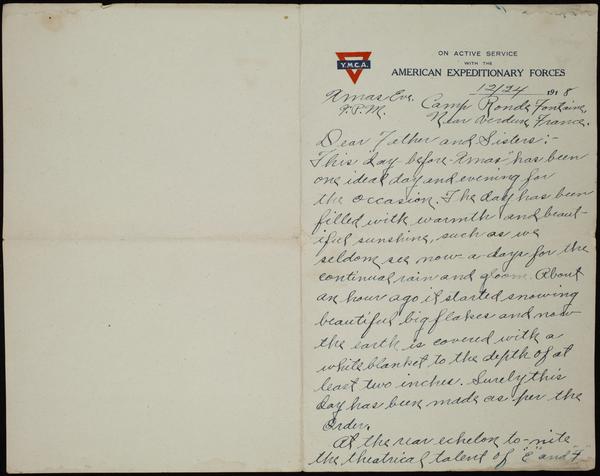 Y.M.C.A.
ON ACTIVE SERVICE
WITH THE
AMERICAN EXPEDITIONARY FORCES
12/24 1918
Xmas Eve. Camp Ronde Fontaine,
9.P.M. Near Verdun, France.
Dear Father and Sisters:-
This "day before Xmas" has been
one ideal day and evening for
the occasion. The day has been
filled with warmth and beaut-
iful sunshine, such as we
seldom see now-a-days for the
continual rain and gloom. About
an hour ago it started snowing
beautiful big flakes and now
the earth is covered with a
white blanket to the depth of at
least two inches. Surely this
day has been made as per the
order.
At the rear echelon to-nite
the theatrical talent of "E" and "F"